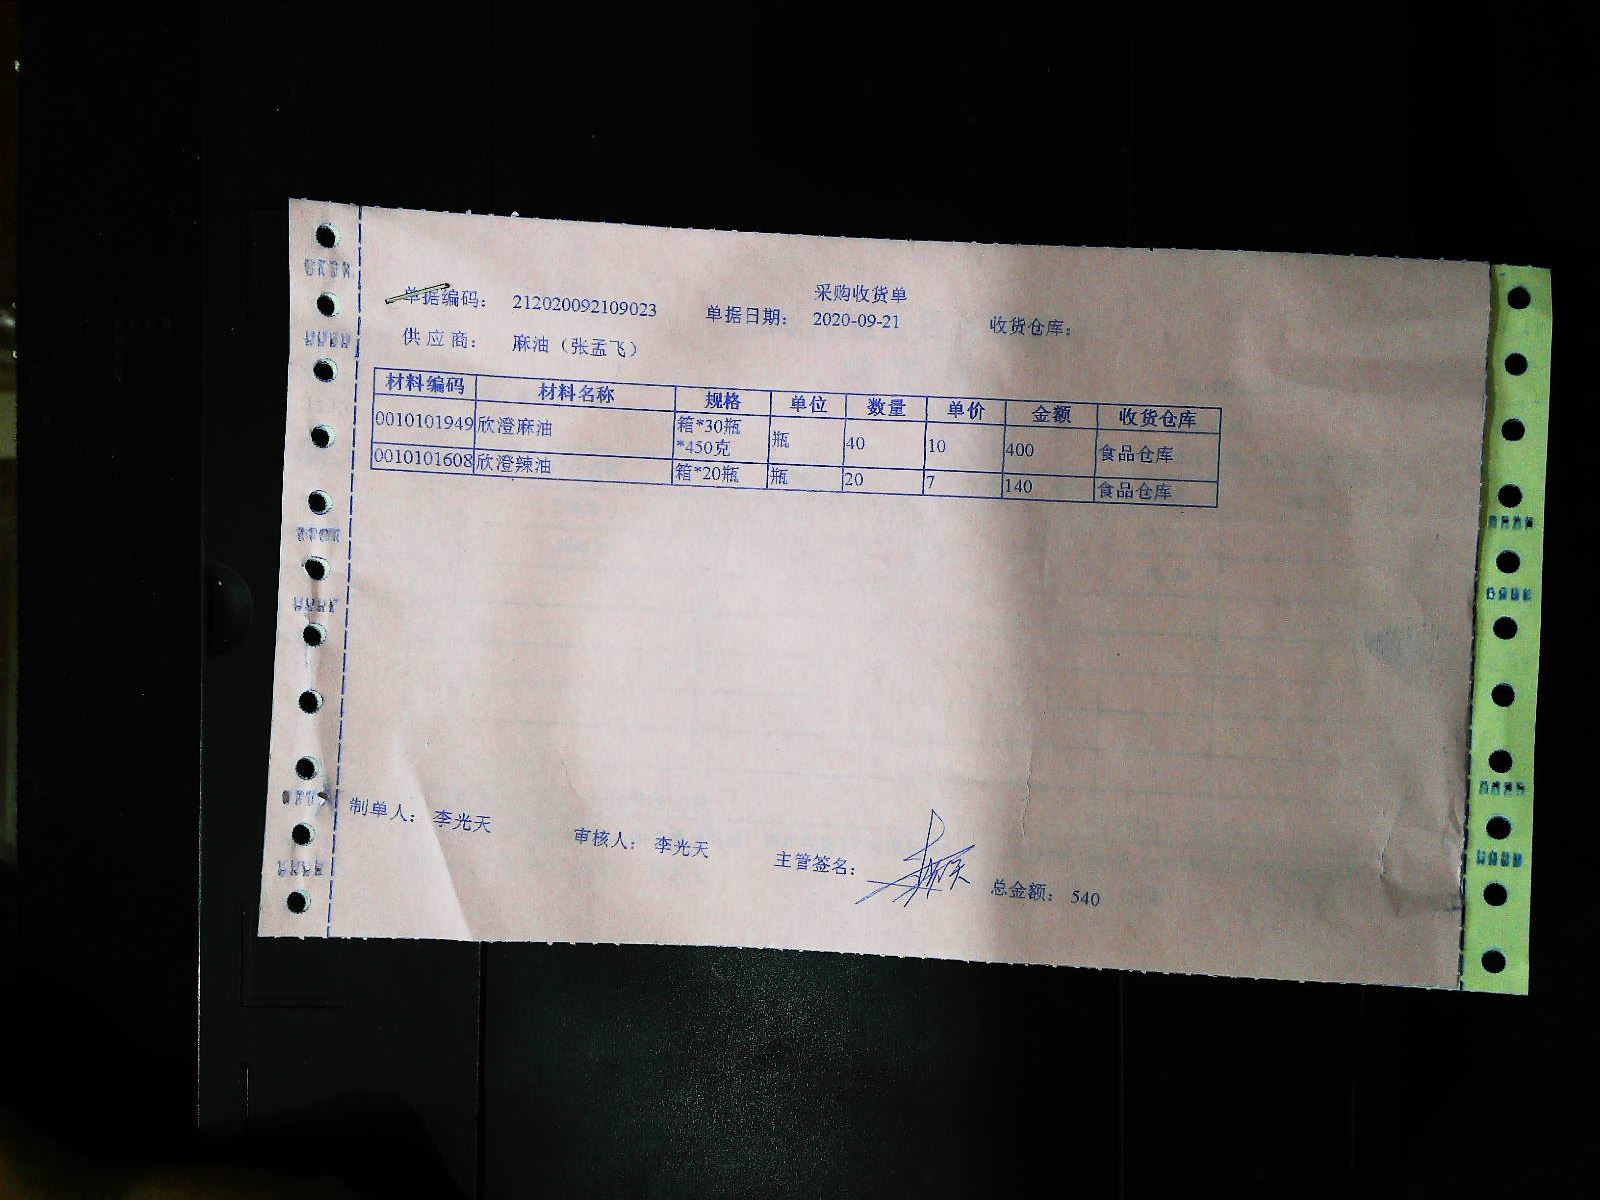 采购收货单
单据编码： 212020092109023 单据日期： 2020-09-21 收货仓库：
供 应 商： 麻油（张孟飞）
材料编码 材料名称 规格 单位 数量 单价 金额 收货仓库
0010101949 欣澄麻油 箱*30瓶*450克 瓶 40 10 400 食品仓库
0010101608 欣澄辣油 箱*20瓶 瓶 20 7 140 食品仓库
制单人： 李光天 审核人： 李光天 主管签名： 总金额： 540